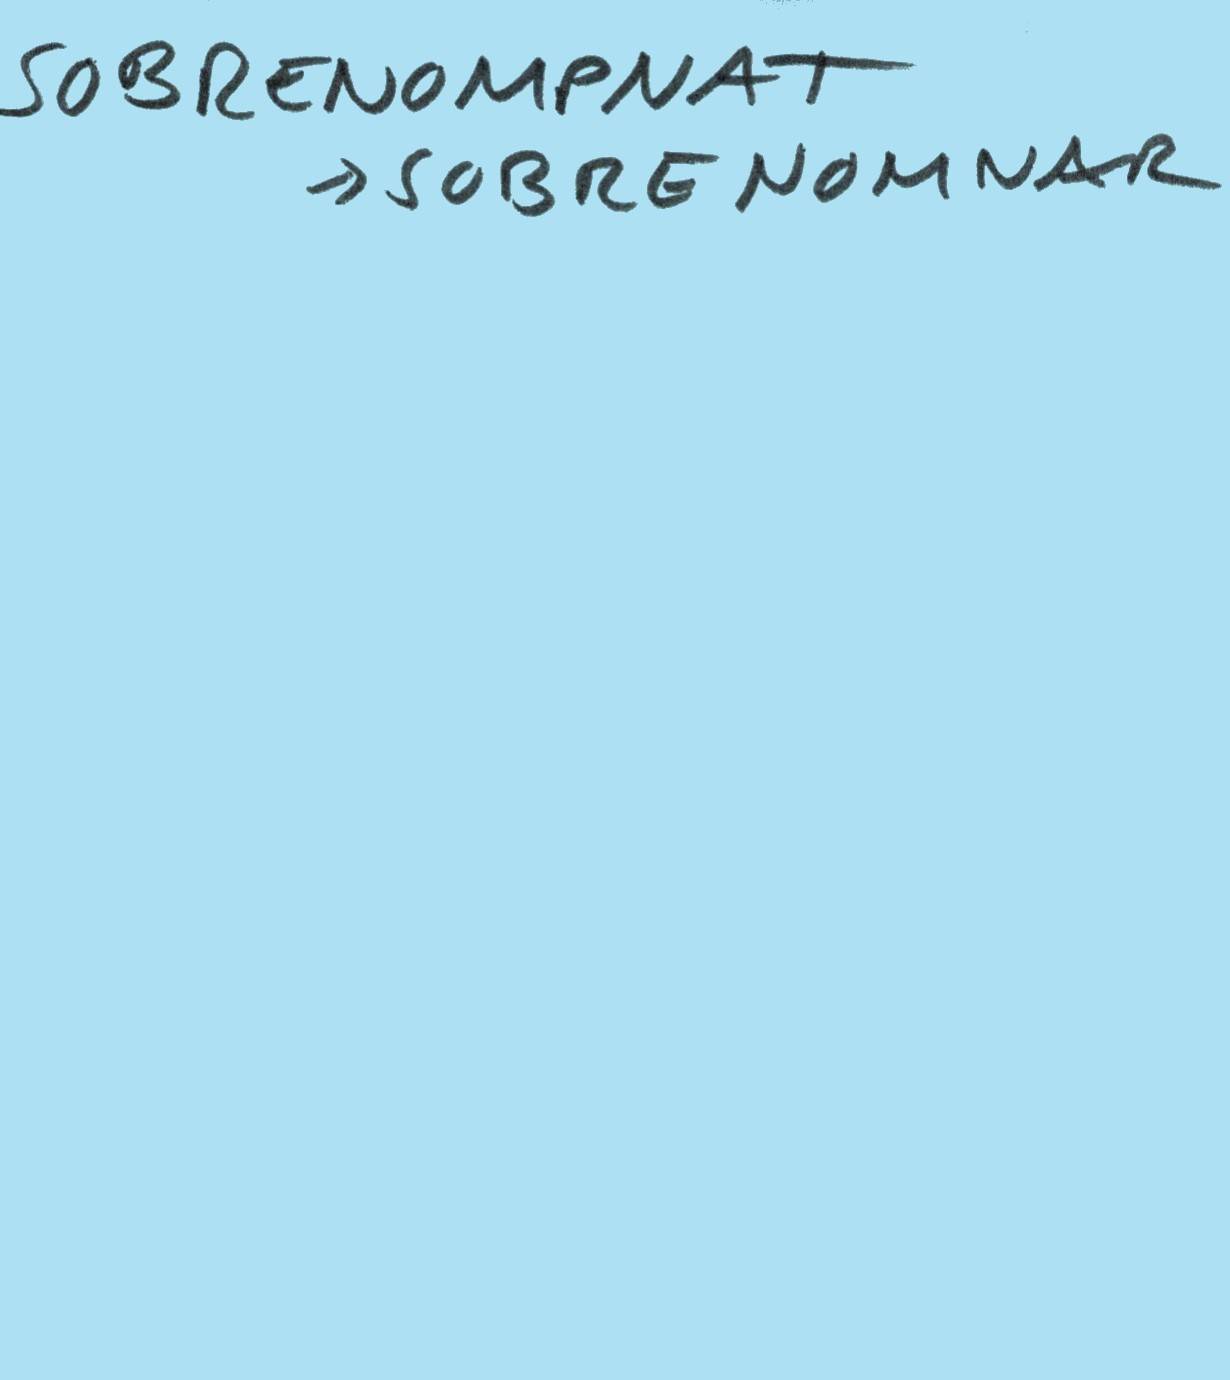 SOBRENOMPNAT
→ SOBRENOMNAR